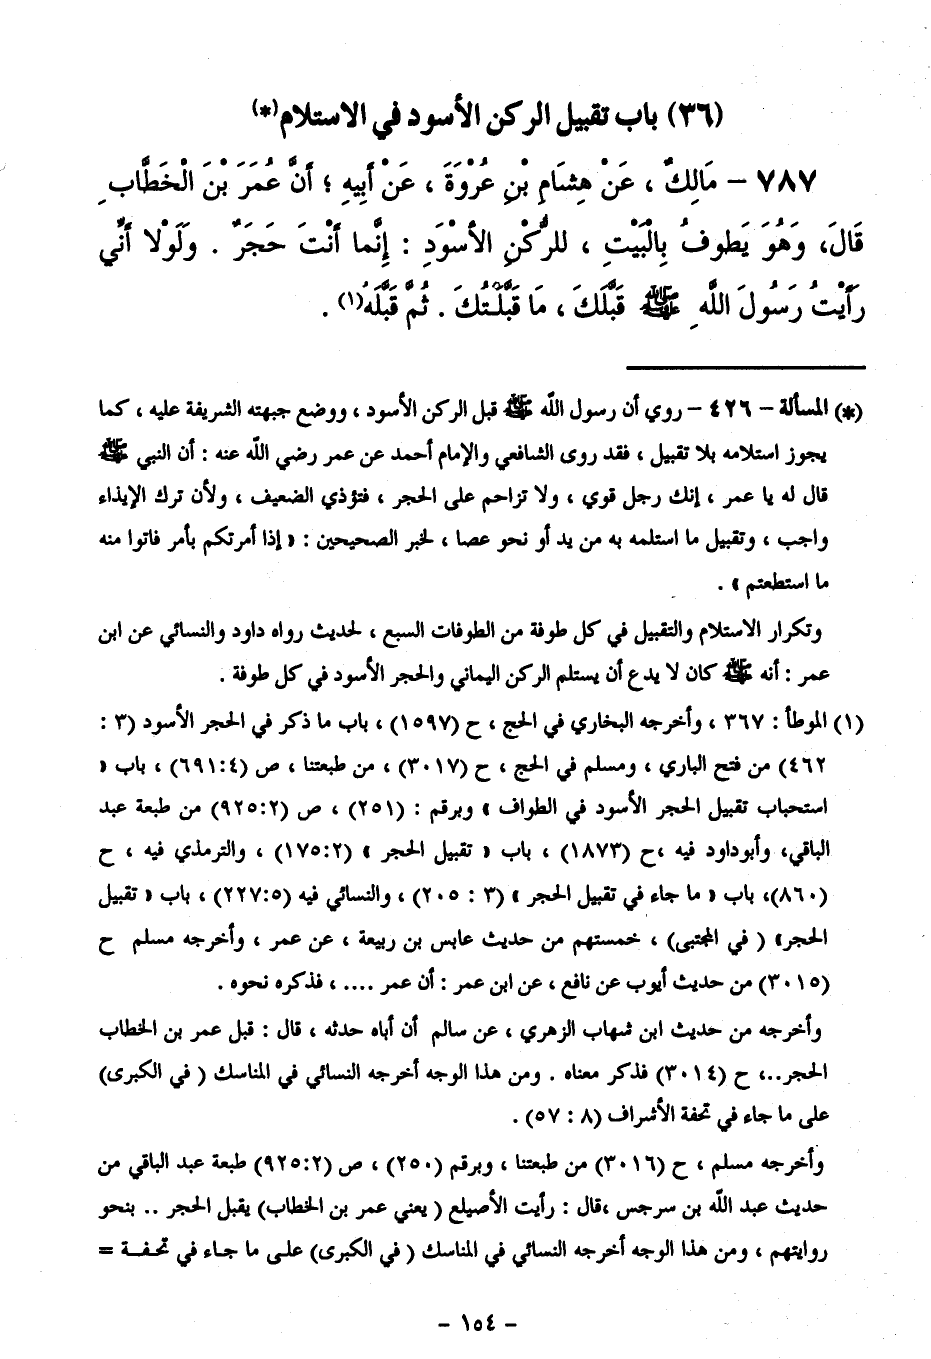 (٣٦) باب تقبيل الركن الأسود في الاستلام(*)
٧٨٧ – مَالِكٌ ، عَنْ هِشَامِ بْنِ عُرْوَةَ ، عَنْ أَبِيهِ ؛ أَنَّ عُمَرَ بْنَ الْخَطَّابِ
قَالَ، وَهُوَ يَطوفُ بِالْبَيْتِ ، للرُّكْنِ الأسْوَدِ : إِنَّما أَنْتَ حَجَرٌ . وَلَوْلا أَنِّي
رَأَيْتُ رَسُولَ اللَّهِ ﷺ قَبَّلَكَ ، مَا قَبَّلْتُكَ . ثُمَّ قَبَّلَهُ(١) .
(*) المسألة – ٤٢٦ – روي أن رسول الله ﷺ قبل الركن الأسود ، ووضع جبهته الشريفة عليه ، كما
يجوز استلامه بلا تقبيل ، فقد روى الشافعي والإمام أحمد عن عمر رضي الله عنه : أن النبي ﷺ
قال له يا عمر ، إنك رجل قوي ، ولا تزاحم على الحجر ، فتؤذي الضعيف ، ولأن ترك الإيذاء
واجب ، وتقبيل ما استلمه به من يد أو نحو عصا ، لخبر الصحيحين : « إذا أمرتكم بأمر فاتوا منه
ما استطعتم » .
وتكرار الاستلام والتقبيل في كل طوفة من الطوفات السبع ، لحديث رواه داود والنسائي عن ابن
عمر : أنه ﷺ كان لا يدع أن يستلم الركن اليماني والحجر الأسود في كل طوفة .
(١) الموطأ : ٣٦٧ ، وأخرجه البخاري في الحج ، ح (١٥٩٧) ، باب ما ذكر في الحجر الأسود (٣ :
٤٦٢) من فتح الباري ، ومسلم في الحج ، ح (٣٠١٧) ، من طبعتنا ، ص (٦٩١:٤) ، باب «
استحباب تقبيل الحجر الأسود في الطواف » وبرقم : (٢٥١) ، ص (٩٢٥:٢) من طبعة عبد
الباقي، وأبوداود فيه ،ح (١٨٧٣) ، باب « تقبيل الحجر » (١٧٥:٢) ، والترمذي فيه ، ح
(٨٦٠)، باب « ما جاء في تقبيل الحجر » (٣ : ٢٠٥) ، والنسائي فيه (٢٢٧:٥) ، باب « تقبيل
الحجر» ( في المجتبى) ، خمستهم من حديث عابس بن ربيعة ، عن عمر ، وأخرجه مسلم ح
(٣٠١٥) من حديث أيوب عن نافع ، عن ابن عمر : أن عمر .... ، فذكره نحوه .
وأخرجه من حديث ابن شهاب الزهري ، عن سالم أن أباه حدثه ، قال : قبل عمر بن الخطاب
الحجر..، ح (٣٠١٤) فذكر معناه . ومن هذا الوجه أخرجه النسائي في المناسك ( في الكبرى)
على ما جاء في تحفة الأشراف (٨ : ٥٧) .
وأخرجه مسلم ، ح (٣٠١٦) من طبعتنا ، وبرقم (٢٥٠) ، ص (٩٢٥:٢) طبعة عبد الباقي من
حديث عبد الله بن سرجس ،قال : رأيت الأصيلع ( يعني عمر بن الخطاب) يقبل الحجر .. بنحو
روايتهم ، ومن هذا الوجه أخرجه النسائي في المناسك ( في الكبرى) على ما جاء في تحفة =
– ١٥٤ –